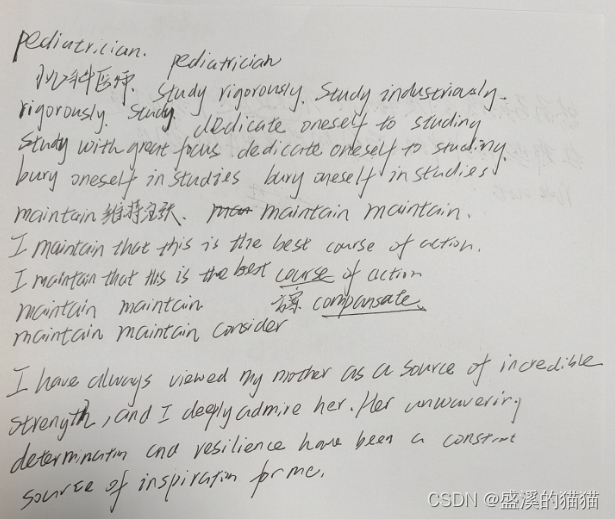 pediatrician. pediatrician
儿科医师. Study rigorously. Study industriously.
rigorously. Study dedicate oneself to studing
Study with great focus dedicate oneself to studing.
bury oneself in studies bury oneself in studies
maintain 维持 maintain maintain.
I maintain that this is the best course of action.
I maintain that this is the best course of action
maintain maintain compansate.
maintain maintain consider
I have always viewed my mother as a source of incredible
strength, and I deeply admire her. Her unwavering
determination and resilience have been a constant
source of inspiration for me.
CSDN @盛溪的猫猫